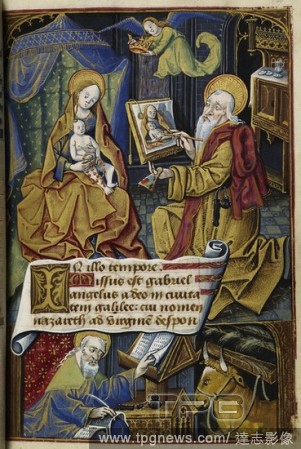 IN illo tempore.
Missus est gabriel
angelus a deo in ciuita
tem galilee: cui nomen
nazareth ad virginē despon
TPG
www.tpgnews.com/達志影像